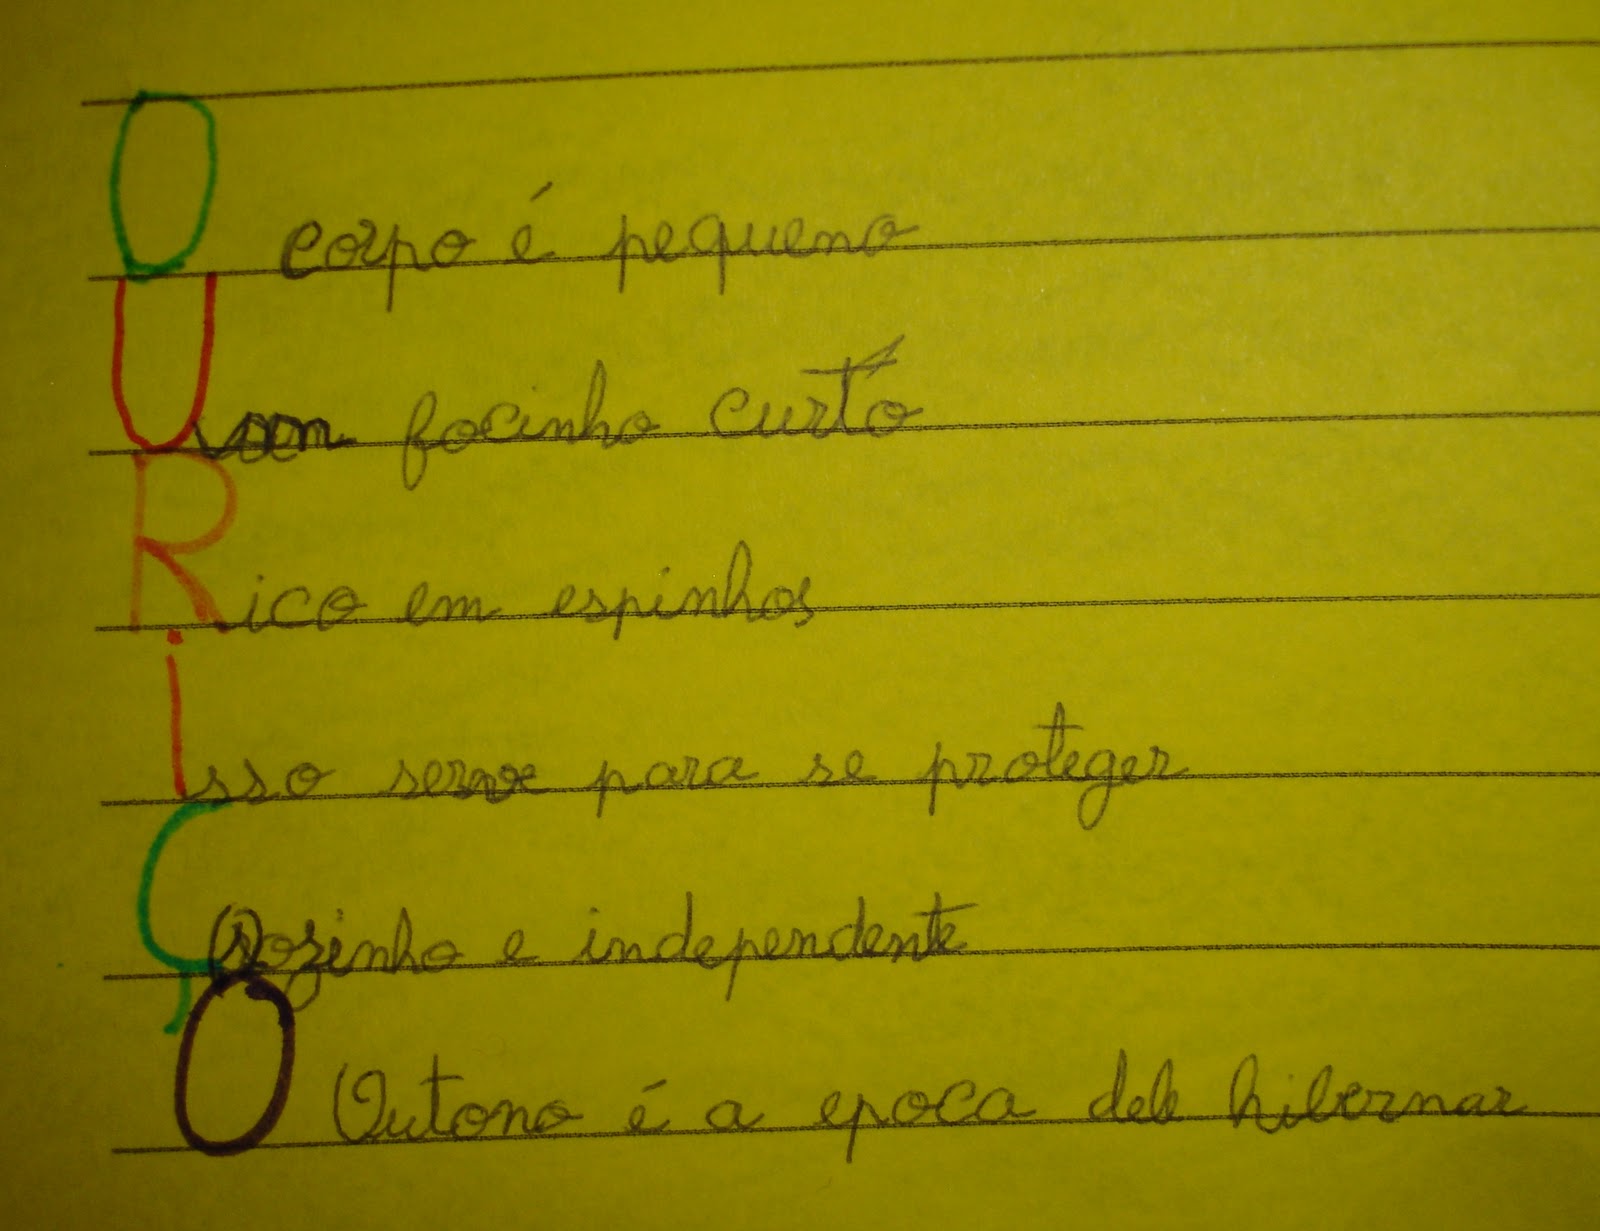 O corpo é pequeno
Um focinho curto
Rico em espinhos
isso serve para se proteger
Ç Sozinho e independente
O Outono é a epoca dele hibernar